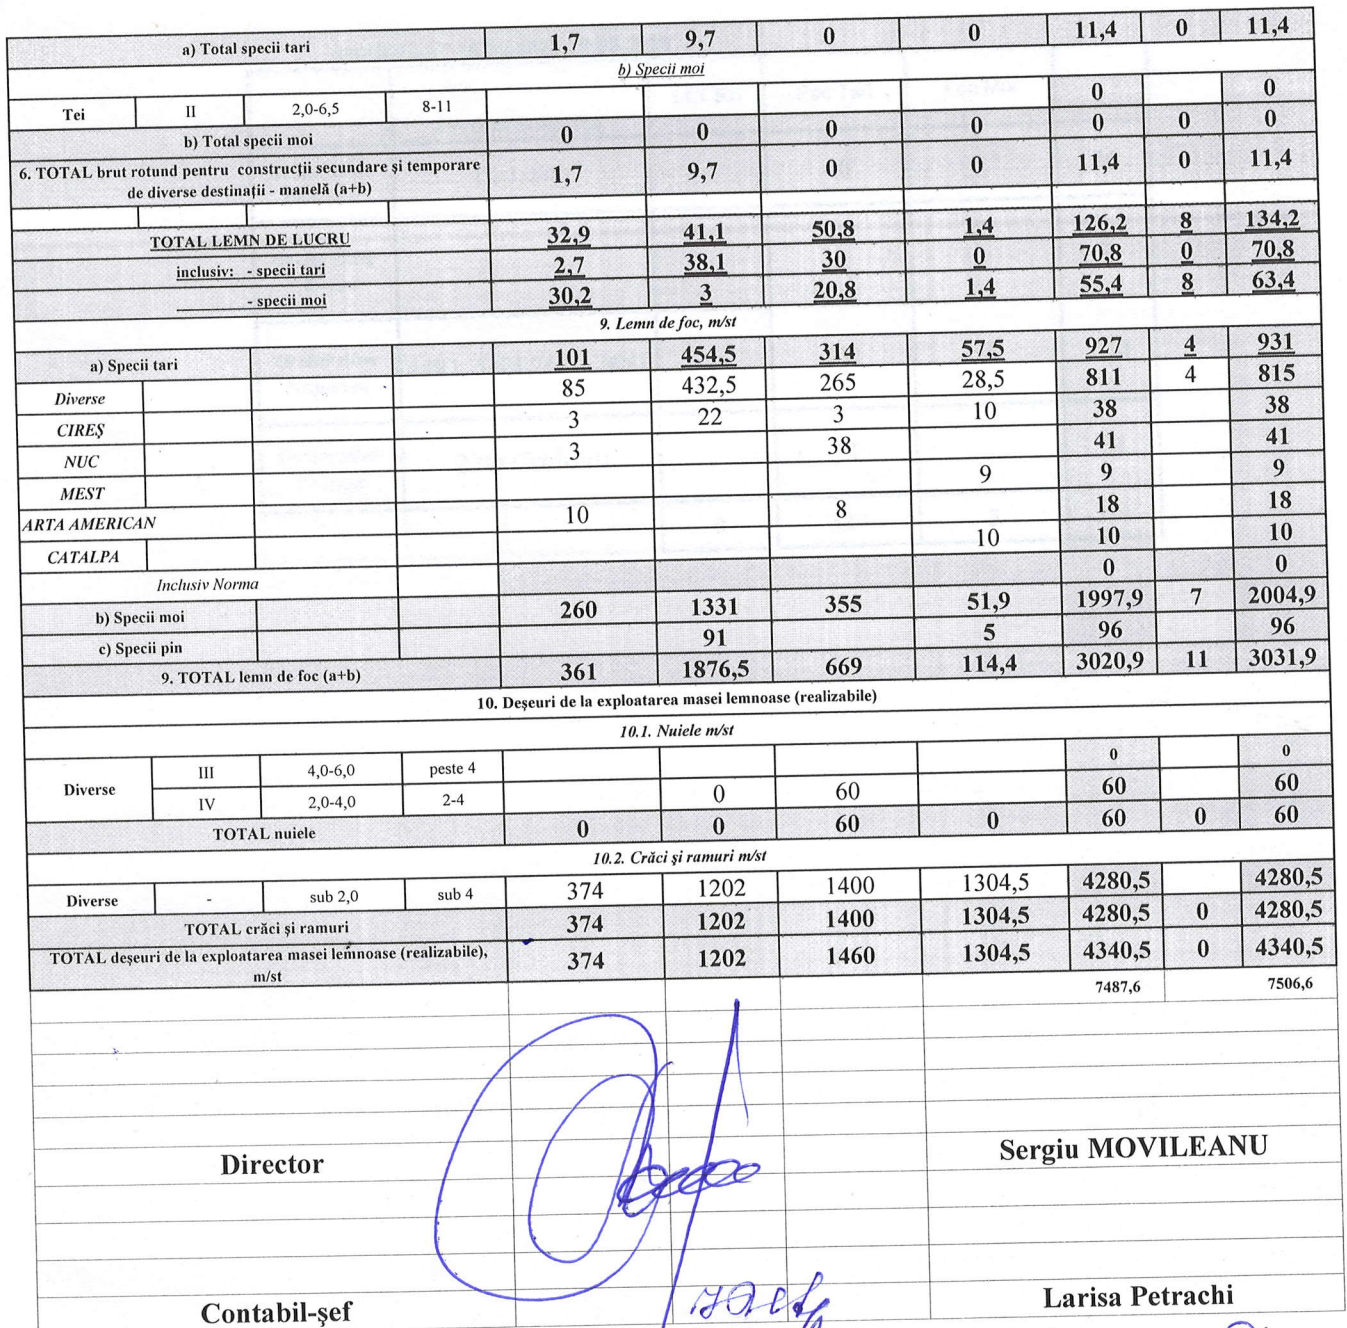 a) Total specii tari 1,7 9,7 0 0 11,4 0 11,4
b) Specii moi
Tei II 2,0-6,5 8-11 0 0
b) Total specii moi 0 0 0 0 0 0 0
6. TOTAL brut rotund pentru construcții secundare și temporare
de diverse destinații - manelă (a+b) 1,7 9,7 0 0 11,4 0 11,4
TOTAL LEMN DE LUCRU 32,9 41,1 50,8 1,4 126,2 8 134,2
inclusiv: - specii tari 2,7 38,1 30 0 70,8 0 70,8
- specii moi 30,2 3 20,8 1,4 55,4 8 63,4
9. Lemn de foc, m/st
a) Specii tari 101 454,5 314 57,5 927 4 931
Diverse 85 432,5 265 28,5 811 4 815
CIREȘ 3 22 3 10 38 38
NUC 3 38 41 41
MEST 9 9 9
ARTA AMERICAN 10 8 18 18
CATALPA 10 10 10
Inclusiv Norma 0 0
b) Specii moi 260 1331 355 51,9 1997,9 7 2004,9
c) Specii pin 91 5 96 96
9. TOTAL lemn de foc (a+b) 361 1876,5 669 114,4 3020,9 11 3031,9
10. Deșeuri de la exploatarea masei lemnoase (realizabile)
10.1. Nuiele m/st
Diverse III 4,0-6,0 peste 4 0 0
IV 2,0-4,0 2-4 0 60 60 60
TOTAL nuiele 0 0 60 0 60 0 60
10.2. Crăci și ramuri m/st
Diverse - sub 2,0 sub 4 374 1202 1400 1304,5 4280,5 4280,5
TOTAL crăci și ramuri 374 1202 1400 1304,5 4280,5 0 4280,5
TOTAL deșeuri de la exploatarea masei lemnoase (realizabile),
m/st 374 1202 1460 1304,5 4340,5 0 4340,5
7487,6 7506,6
Director Sergiu MOVILEANU
Contabil-șef Larisa Petrachi